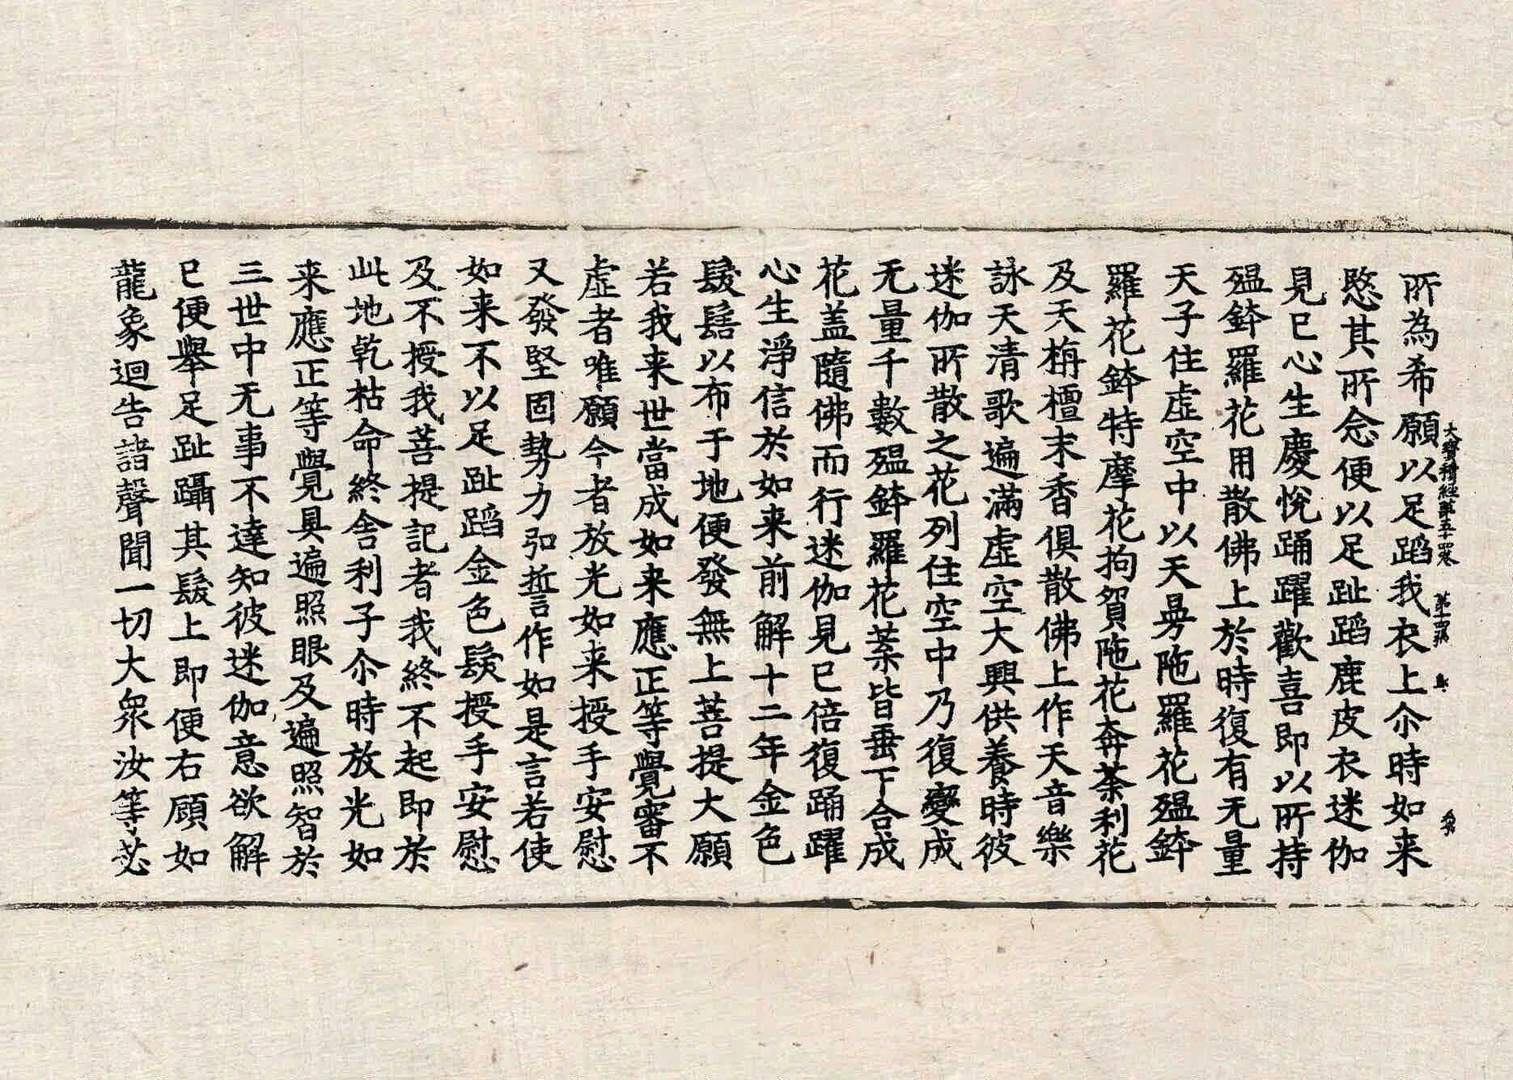 大寳積經第五十四卷 第十二張
所為希願以足蹈我衣上尒時如来
愍其所念便以足趾蹈鹿皮衣迷伽
見已心生慶悅踊躍歡喜即以所持
殟鉢羅花用散佛上於時復有无量
天子住虛空中以天㬅陁羅花殟鉢
羅花鉢特摩花拘貿陁花奔荼利花
及天栴檀末香俱散佛上作天音樂
詠天清歌遍滿虛空大興供養時彼
迷伽所散之花列住空中乃復變成
无量千數殟鉢羅花葉皆垂下合成
花盖隨佛而行迷伽見已倍復踊躍
心生淨信於如来前解十二年金色
髮髻以布于地便發無上菩提大願
若我来世當成如来應正等覺審不
虛者唯願今者放光如来授手安慰
又發堅固勢力弘誓作如是言若使
如来不以足趾蹈金色髮授手安慰
及不授我菩提記者我終不起即於
此地乾枯命終舍利子尒時放光如
来應正等覺具遍照眼及遍照智於
三世中无事不達知彼迷伽意欲解
已便舉足趾躡其髮上即便右顧如
龍象迴告諸聲聞一切大衆汝等苾